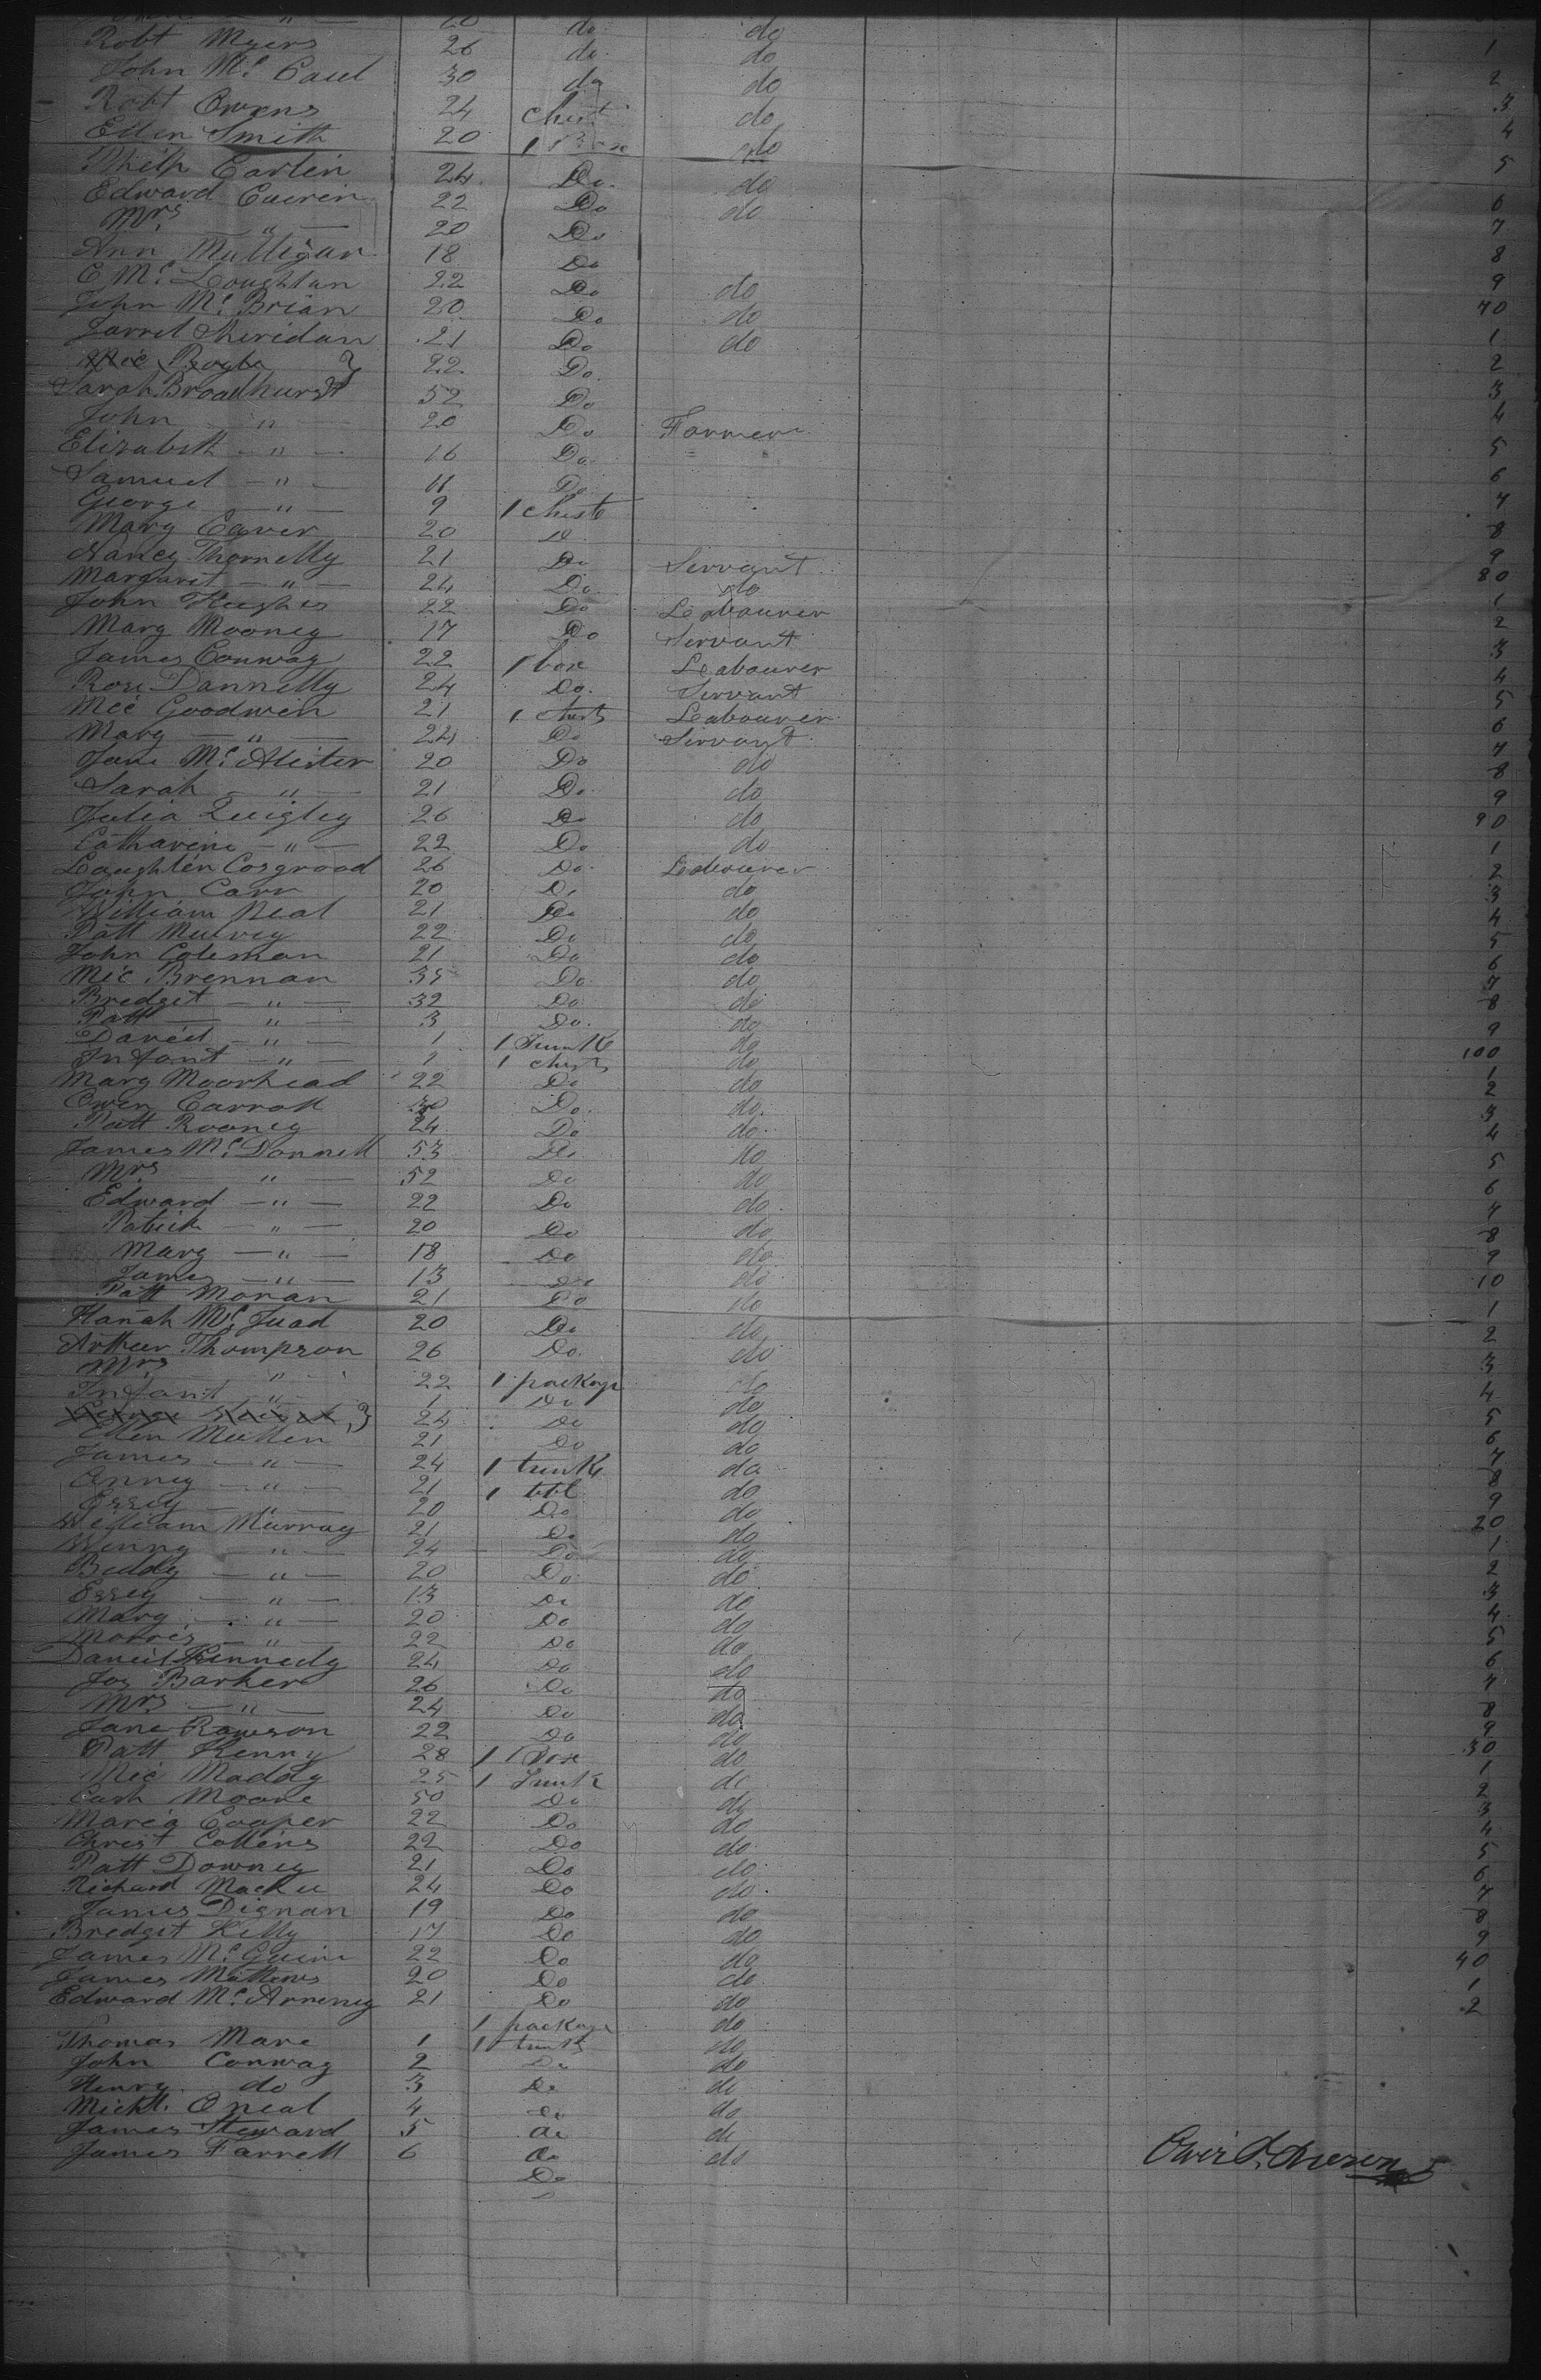 20 do. do
Robt Myers 26 do. do 1
John Mc Caul 30 do do 2
Robt Owens 24 chest do 3
Ellen Smith 20 1 Box do 4
Philip Carlin 24 Do. do 5
Edward Caveren 22 Do do 6
Mrs — " — 20 Do 7
Ann Mulligan 18 Do 8
C Mc Loughlan 22 Do do 9
John Mc Brian 20 Do do 70
Jarrel Sheridan 21 Do do 1
Mic Boyle 22 Do. 2
Sarah Broadhurst 52 Do 3
John " — 20 Do Farmer 4
Elizabeth — " — 16 Do. 5
Samuel — " — 11 Do 6
George — " — 9 1 cheste 7
Mary Caver 20 D 8
Nancy Thornelly 21 Do Servant 9
Margaret — " — 24 Do. do 80
John Hughes 22 Do Leabourer 1
Mary Mooney 17 Do Servant 2
James Conway 22 1 box Leabourer 3
Rose Dannelly 24 Do. Servant 4
Mic Goodwen 21 1 chest Leabourer 5
Mary — " — 24 Do Servant 6
Jane Mc Alister 20 Do do 7
Sarah — " — 21 Do do 8
Julia Quigley 26 Do do 9
Catharine — " — 22 Do do 90
Laughlen Cosgrood 26 Do Leabourer 1
John Carr 20 Do do 2
William Neal 21 Do do 3
Patt Mulvey 22 Do do 4
John Coleman 21 Do do 5
Mic Brennan 35 Do do 6
Bredget — " — 32 Do do 7
Patt — " — 3 Do. do 8
Daniel — " — 1 1 Trunk do 9
Infant — " — 1 chests do 100
Mary Moorhead 22 Do do 1
Owen Carroll 30 Do. do. 2
Patt Rooney 24 Do do 3
James Mc Donnell 53 Do do 4
Mrs " — 52 Do do 5
Edward — " — 22 Do do 6
Patrick — " — 20 Do do 7
Mary — " — 18 Do do 8
James — " — 13 Do do 9
Patt Moran 21 Do do 10
Hanah Mc Juad 20 Do do 1
Arthur Thompson 26 Do. do 2
Mrs " 22 1 package do 3
Infant " 1 Do do 4
24 Do do 5
Ellen Mullen 21 Do do 6
James — " — 24 1 trunk do 7
Anney — " — 21 1 bbl do 8
Essey — " — 20 Do do 9
William Murray 21 Do do 20
Winny — " — 24 Do do 1
Biddy — " — 20 Do do 2
Essey — " — 13 Do do 3
Mary — " — 20 Do do 4
Morris — " — 22 Do do 5
Daniel Kennedy 24 Do do 6
Jos Barker 26 Do do 7
Mrs — " 24 Do do 8
Jane Rowson 22 Do do 9
Patt Kenny 28 1 Box do 30
Mic Maddy 25 1 Trunk do 1
Cath Moore 50 Do do 2
Marea Cooper 22 Do do 3
Christ Collens 22 Do do 4
Patt Downey 21 Do do 5
Richard Mackee 24 Do do 6
James Dignan 19 Do do 7
Bredget Kelly 17 Do do 8
James Mc Guini 22 Do do 9
James Mathews 20 Do do 40
Edward Mc Anneny 21 Do do 1
1 package do 2
Thomas Mare 1 1 trunk do
John Conway 2 Do do
Henry do 3 Do do
Michl. O neal 4 do do
James Steward 5 do do
James Farrell 6 do do
Do